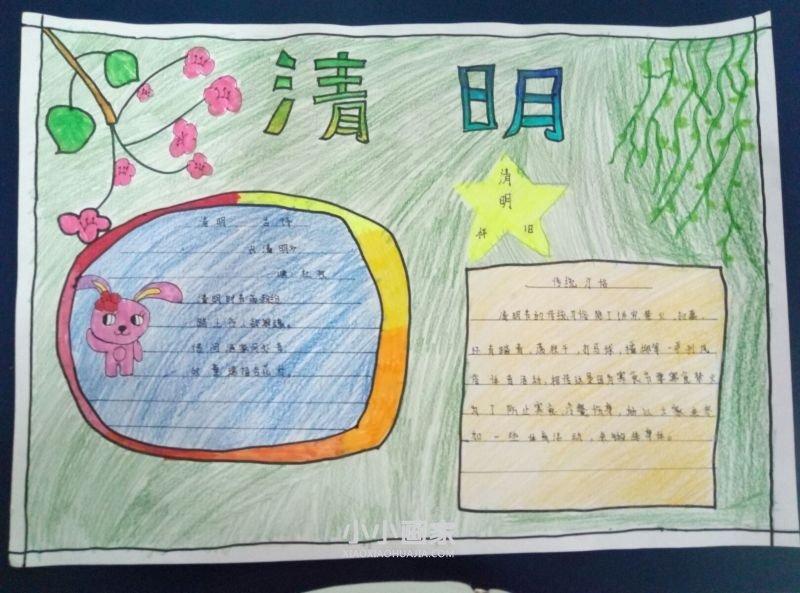 清明
清明
习
俗
清明 古诗
《清明》
唐 杜牧
清明时节雨纷纷
路上行人欲断魂。
借问酒家何处有
牧童遥指杏花村
传统习俗
清明节的传统习俗除了讲究禁火、扫墓,
还有踏青、荡秋千、打马球、插柳等一系列风
俗体育活动,相传这是因为寒食节要寒食禁火
为了防止寒食冷餐伤身,所以大家来参
加一些体育活动,来锻炼身体。
小小画家
XIAOXIAOHUAJIA.COM